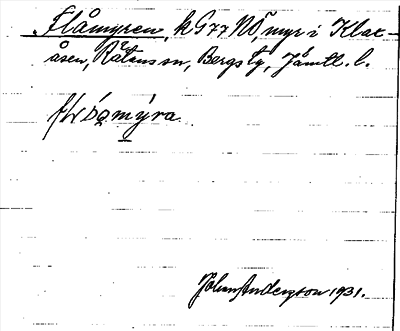 Flåmyren, k G77 NÖ, myr i Klax-
åsen, Rätans sn, Bergs tg, Jämtl. l.
mýra
Johan Anderzson 1931.